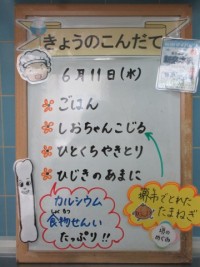 きょうのこんだて
6月11日(水)
ごはん
しおちゃんこじる
ひとくちやきとり
ひじきのあまに
カルシウム
食物せんい
たっぷり!!
堺市でとれた
たまねぎ